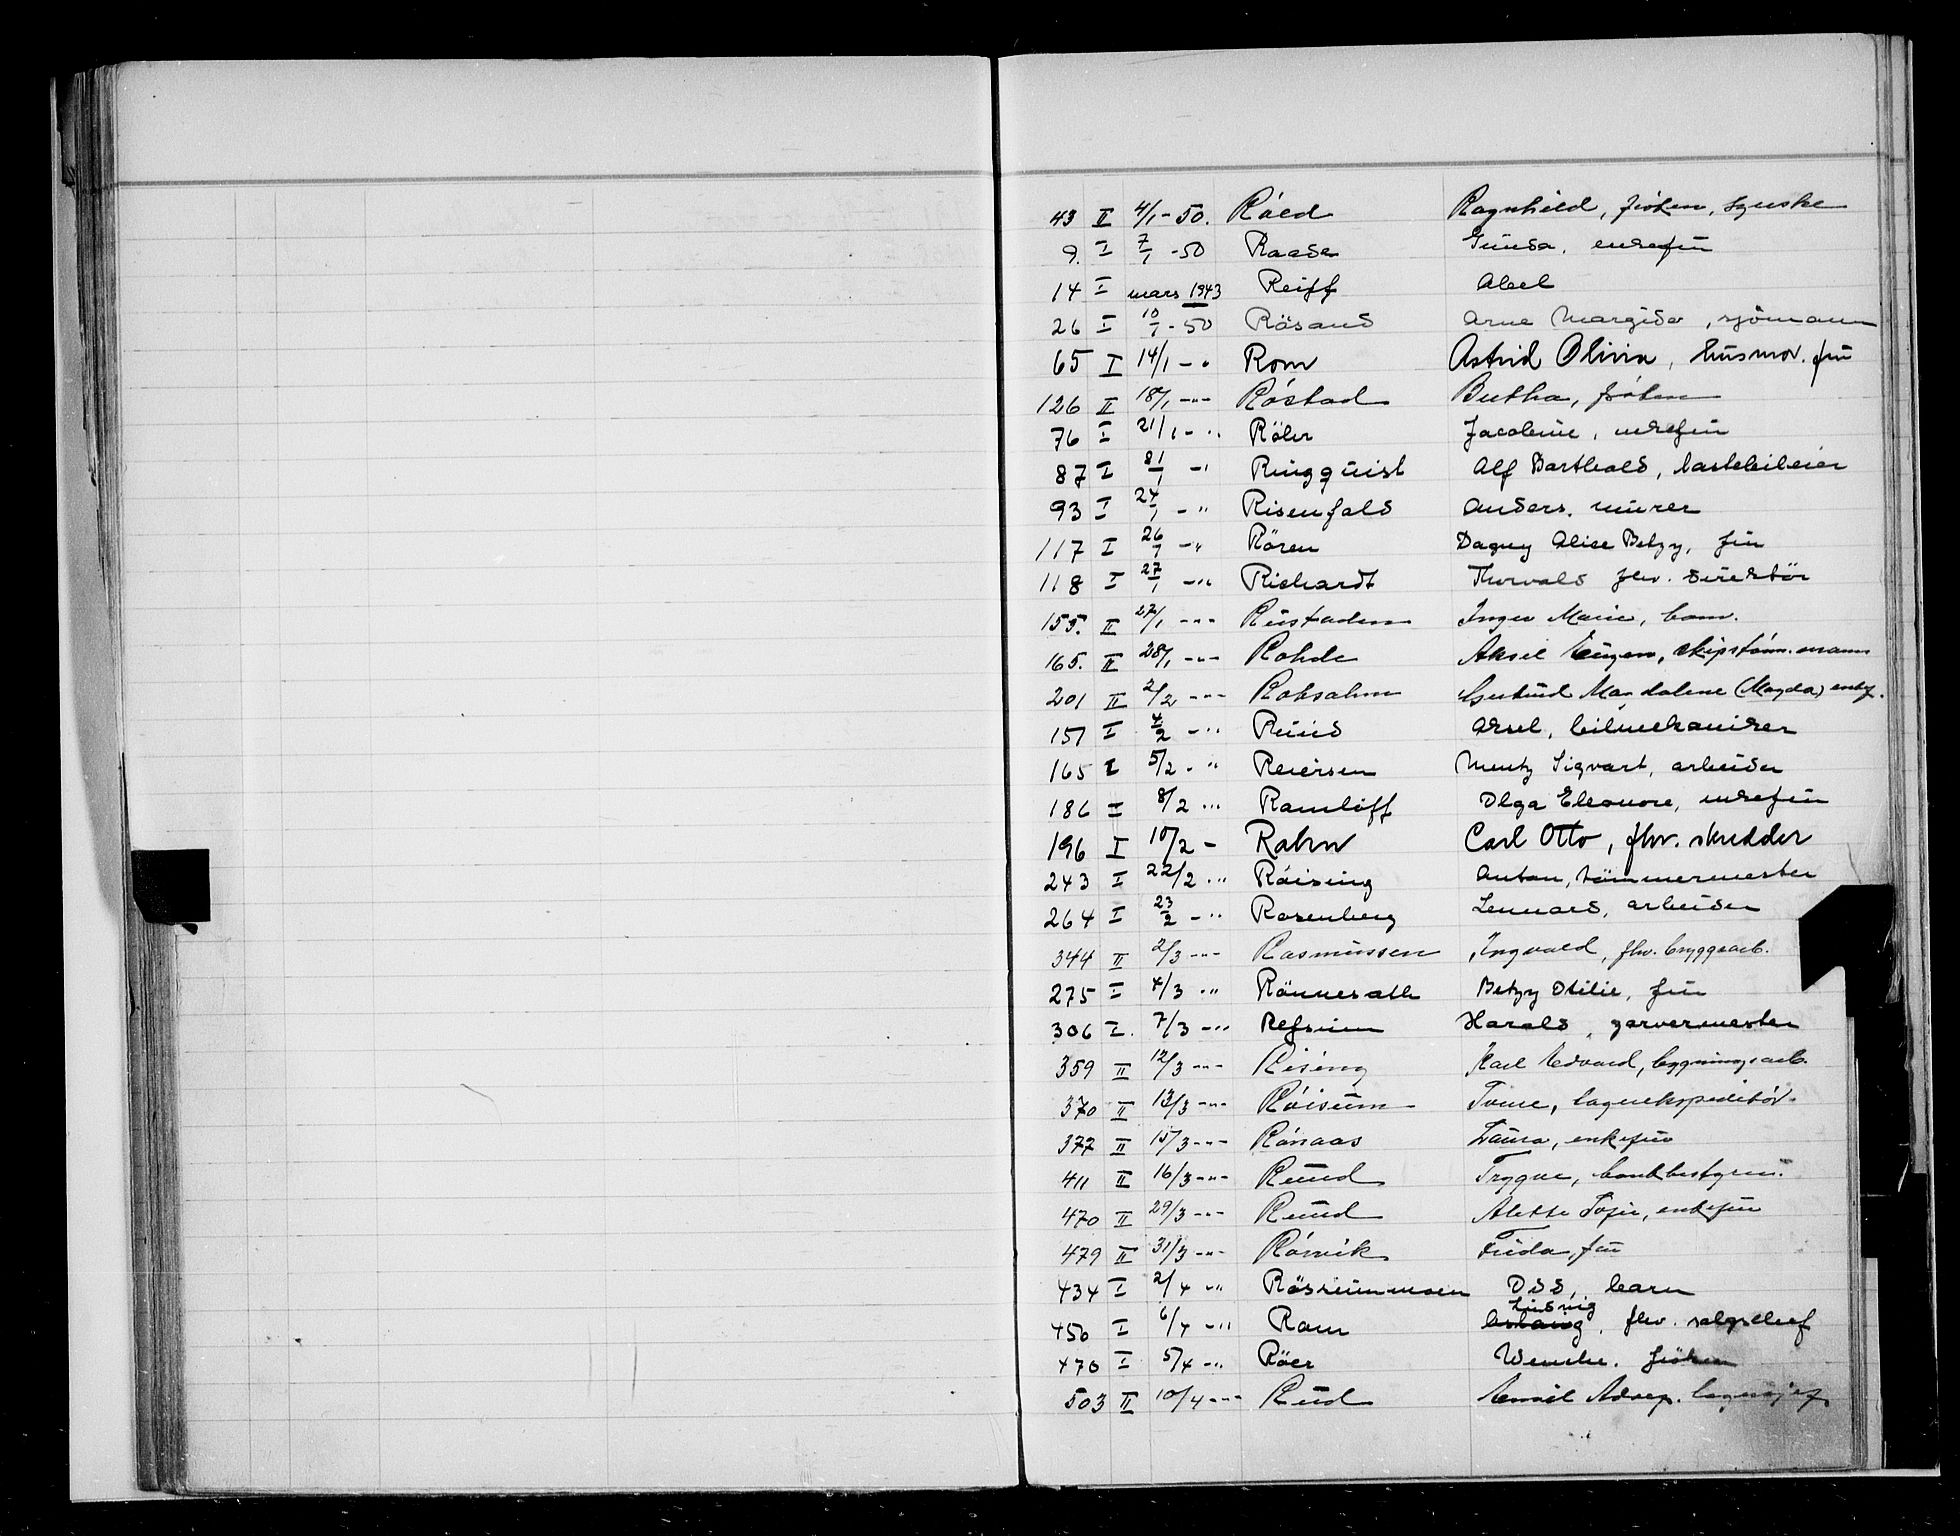 43 II 4/1-50. Róed Ragnhild, frøken, syerske
9. I 7/1 -50 Raade enkefrü
14 I mars 1943 Reiff Abel
26 I 10/1 - 50 Råsand Arne Margido, sjömann
65 I 14/1 - " Rom Astrid Olivia, husmor. frü
126 II 18/1 -"- Róstad frøken
76 I 21/1 - " Röler Jacobine, enkefrü
87 I 81/1 -" Ringquist Alf Barthold, lastebileier
93 I 24/1 - " Risenfald Anders. mürer
117 I 26/1 -" Rören Dagny Alice Betzy, frü
118 I 27/1 -"' Richardt Thorvald fhv. direktör
155. II 27/1 -"- Rüstaden Inger Marie, barn.
165. II 28/1 -"- Rohde Aksel Eügen, skipstömm.mann
201 II 2/2 -"- Roksahm Gertrüd Magdalene (Magda) enkef.
151 I 4/2 -"' Rüüd Aksel, bilmekaniker
165 I 5/2 - " Reiersen Mentz Sigvart, arbeider
186 I 8/2 "' Ramlöff Olga Eleonore, enkefrü
196 I 10/2 - Rahn Carl Otto, fhv. skredder
243 I 22/2 "' Röising Anton, tömmermester
264 I 23/2 -"' Rosenberg Lennard, arbeider
344 II 2/3 -"- Rasmüssen Ingvald, fhv. bryggearb.
275 I 4/3 "' Rönnesath Betzy Otilie, frü
306 I. 7/3 -"' Refsüm Harald, garvermester
359 II 12/3 -"- Rising Karl Edvard, bygningsarb.
370 II 13/3 -"- Róisüm Tome, lagerekspeditór.
377 II 15/3 -"- Rónaas Laüra, enkefrü
411 II 16/3 -"- Rüüd Trygve, bankbestyrer.
470 II 29/3 -"- Rüüd Alette Sofie, enkefrü
479 II 31/3 -"- Rórvik Frida, frü
434 I 2/4 " Rösrümmoen Odd, barn
450 I 6/4 -"' Ram Ludvig, fhv. salgschef
470 I 5/4 -" Röer Wenche. fröken
503 II 10/4 -"- Rüd Emil Adof. lagersjef